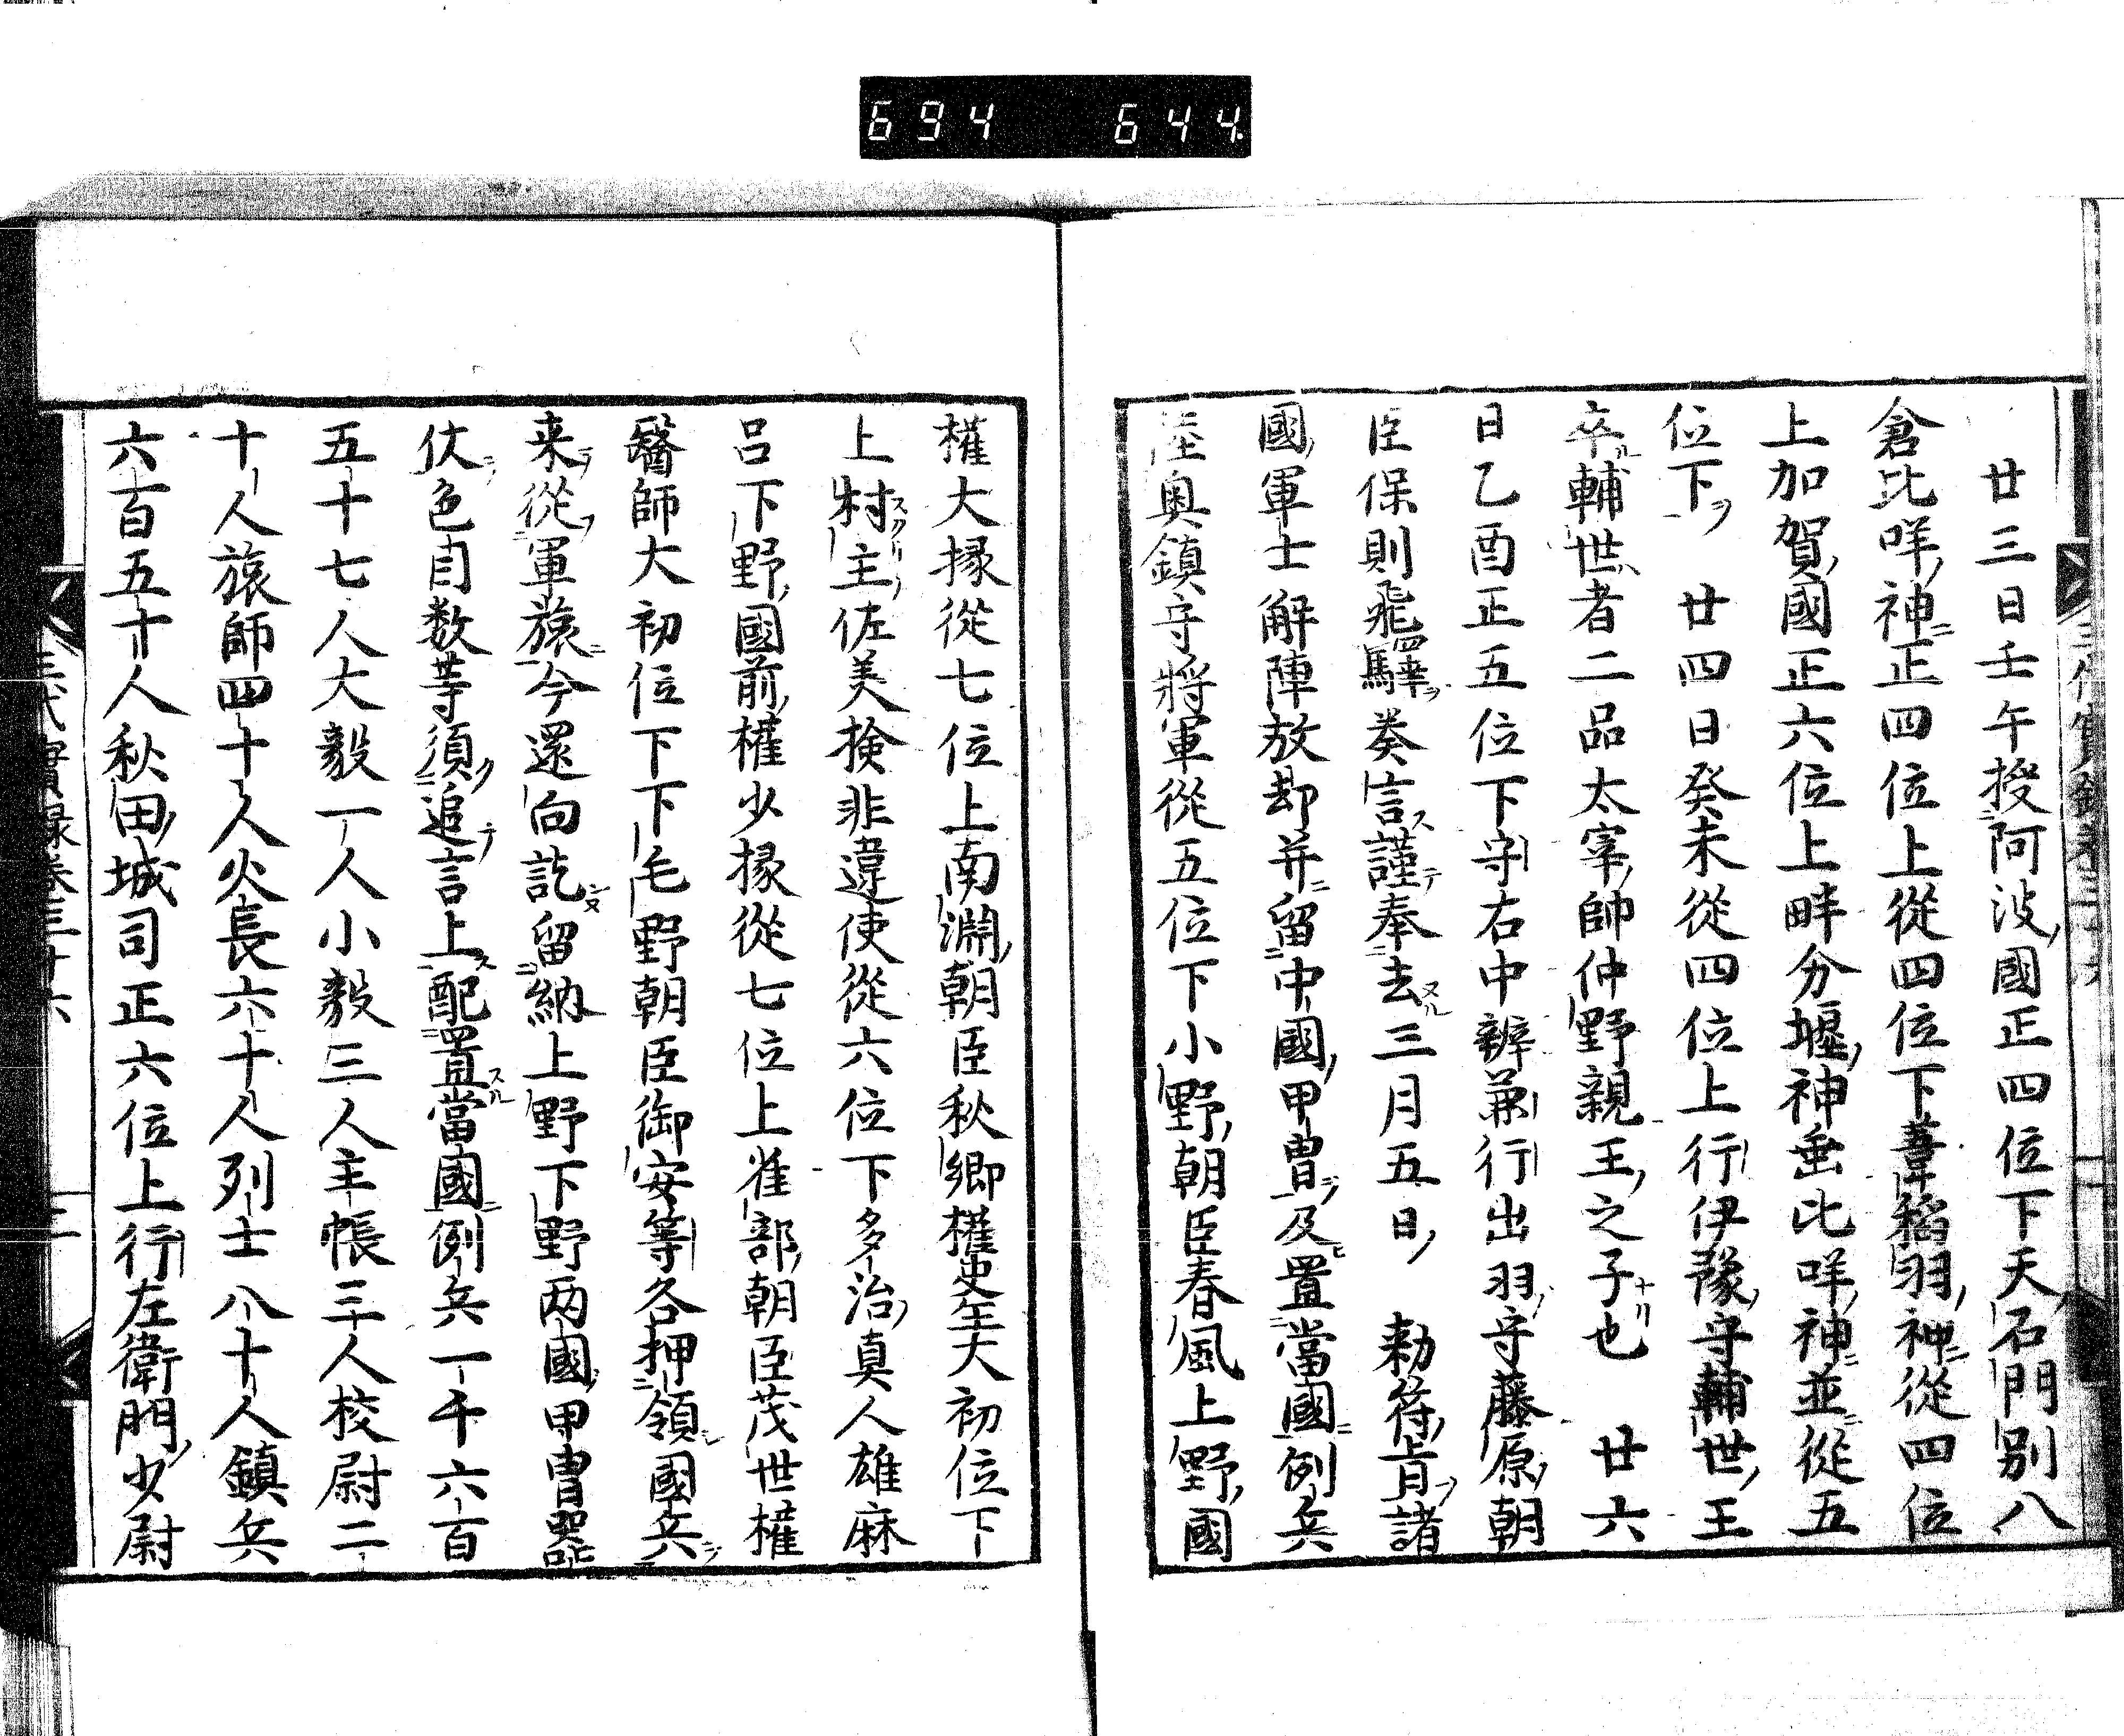 694 644
廿三日壬午授阿波國正四位下天石門别八
倉比咩神正四位上從四位下葦稻羽神從四位
上加賀國正六位上畔分堰神垂比咩神並從五
位下 廿四日癸未從四位上行伊豫守輔世王
卒輔世者二品太宰帥仲野親王之子也 廿六
日乙酉正五位下守右中辨兼行出羽守藤原朝
臣保則飛驛奏言謹奉去三月五日 勅符旨諸
國軍士解陣放却并留中國甲冑及置當國例兵
陸奥鎮守將軍從五位下小野朝臣春風上野國
權大掾從七位上南淵朝臣秋郷權史生大初位下
上村主佐美撿非違使從六位下多治真人雄麻
呂下野國前權少掾從七位上雀部朝臣茂世權
醫師大初位下下毛野朝臣御安等各押領國兵
来從軍旅今還向訖留納上野下野两國甲冑器
仗色目数等須追言上配置當國例兵一千六百
五十七人大毅一人小毅三人主帳三人校尉二
十人旅師四十人火長六十人列士八十人鎮兵
六百五十人秋田城司正六位上行左衛門少尉
三代實録卷三十六